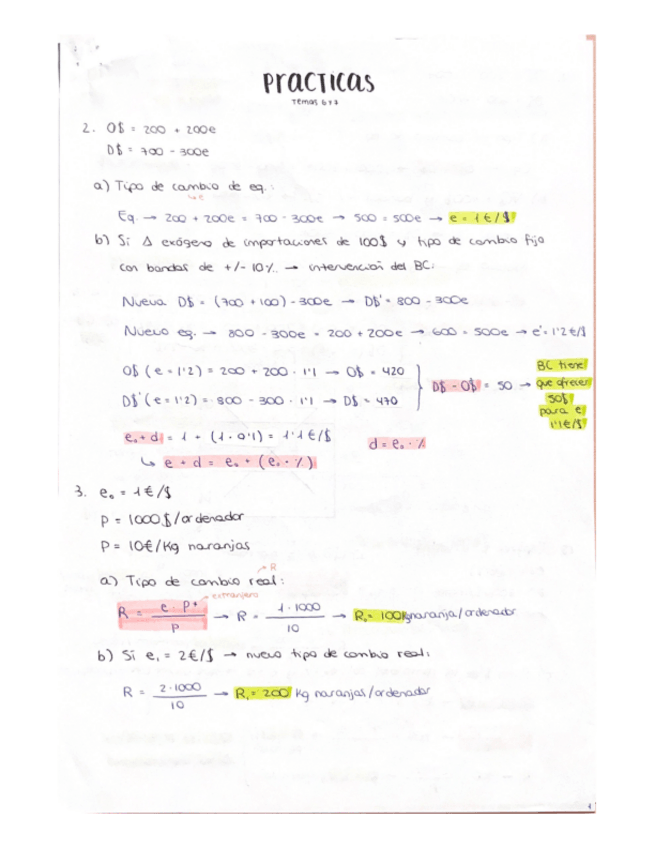 PRACTICAS
TEMAS 6 Y 7
2. O$ = 200 + 200e
D$ = 700 - 300e
a) Tipo de cambio de eq.:
→ e
Eq. → 200 + 200e = 700 - 300e → 500 = 500e → e = 1€/$
b) Si Δ exógeno de importaciones de 100$ y tipo de cambio fijo
con bandas de +/- 10%. → intervención del BC:
Nueva D$ = (700 + 100) - 300e → D$' = 800 - 300e
Nuevo eq. → 800 - 300e = 200 + 200e → 600 = 500e → e' = 1'2€/$
O$ (e = 1'2) = 200 + 200 · 1'1 → O$ = 420
D$' (e = 1'2) = 800 - 300 · 1'1 → D$ = 470
D$ - O$ = 50 → BC tiene que ofrecer 50$ para e 1'1€/$
e₀ + d = 1 + (1 · 0'1) = 1'1€/$ d = e₀ · %
↳ e + d = e₀ + (e₀ · %)
3. e₀ = 1€/$
P = 1000$/ordenador
P = 10€/Kg naranjas
→ R
a) Tipo de cambio real:
extranjero
R = e · P* / P → R = 1 · 1000 / 10 → R₀ = 100Kg naranja/ordenador
b) Si e₁ = 2€/$ → nuevo tipo de cambio real:
R = 2 · 1000 / 10 → R₁ = 200 Kg naranjas/ordenador